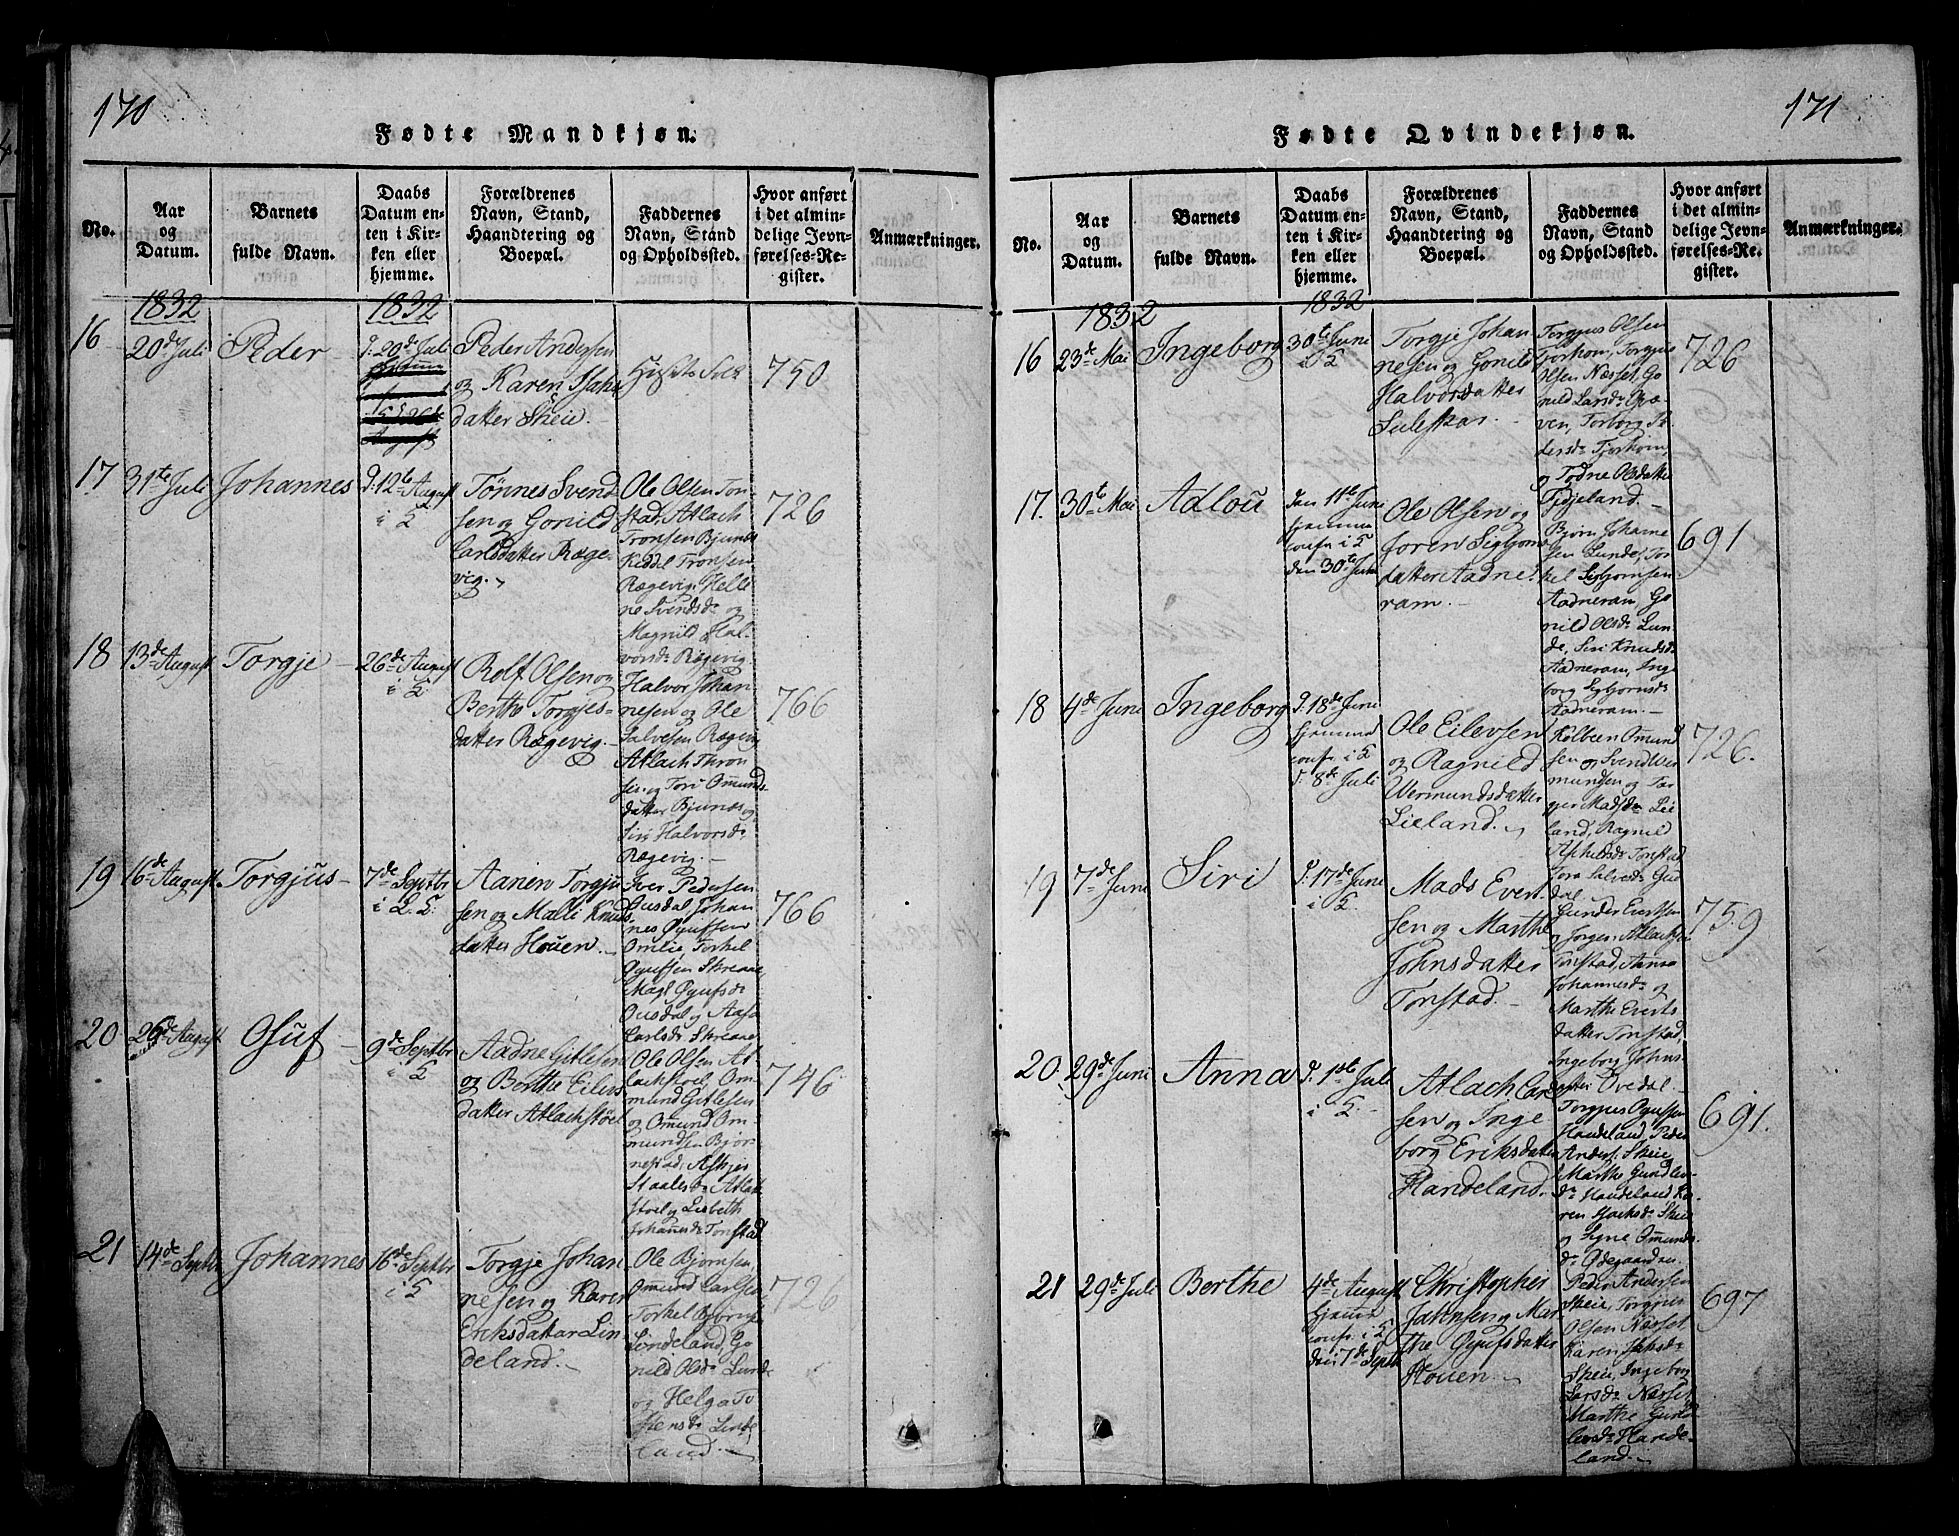 170
Fødte Mandkjøn.
No.
Aar
og
Datum.
Barnets
fulde Navn.
Daabs
Datum en-
ten i Kir-
ken eller
hjemme.
Forældrenes
Navn, Stand,
Haandtering og
Boepæl.
Faddernes
Navn, Stand
og Opholdssted.
Hvor anført
i det almin-
delige Jevn-
førelses-Re-
gister.
Anmærkninger.
1832
1832
16
20de Juli
Peder
d. 20de Juli
August
Peder Andersen
og Karen
datter Skeie.
750
17
31te Juli
Johannes
d. 12te August
i K
Tønnes Svend
sen og Gonild
Carlsdatter Røge-
vig.
Ole Olsen Ton-
stad, Atlach
Tronsen Bjunes
Keddel Tronsen
Røgevig, Helle
ne Svendsdr og
Magnild Hal-
vorsdr Røgevig.
726
18
13de August
Torgje
26de August
i K
Rolf Olsen og
Berthe Torgjes-
datter Røgevig.
Halvor Johan
nesen og Ole
Salvesen Røgevig
Atlach Thron
sen og Tori Omunds
datter Bjunes og
Siri Halvorsdr
Røgevig.
766
19
16de August
Torgjus
7de Septbr
Aanen Torgju
sen og Malli Knuds
datter Houen.
Iver Pedersen
Ousdal, Johan
nes Ogufsen
Omlie, Torkel
Ogufsen Skreaae
Magl Ogufsdr
Ousdal og Aasa
Carlsdr Skreaae
766
20
26de August
Osuf
9de Septbr
i K
Aadne Gitlesen
og Berthe Eilers
datter Atlachstøel
Ole Olsen At-
lachstoel, Om-
mund Gitlesen
og Omund Om-
mundsen Bjør-
nestad, Askjer
Staalesdr Atlak
stoel og Lisbeth
Johannesdr Tonstad
746
21
14de Septbr
Johannes
16de Septbr
i K
Torgje Johan
nesen og Karen
Eriksdatter Lin
deland.
Ole Bjornsen,
Omund Carlsen
Torkel
Lindeland, Go
nild Olsdr Lunde
og Helga To
Linde
land.
726
171
Fødte Qvindekjøn.
No.
Aar
og
Datum.
Barnets
fulde Navn.
Daabs
Datum en-
ten i Kir-
ken eller
hjemme.
Forældrenes
Navn, Stand,
Haandtering og
Boepæl.
Faddernes
Navn, Stand
og Opholdssted.
Hvor anført
i det almin-
delige Jevn-
førelses-Re-
gister.
Anmærkninger.
1832
1832
16
23de Mai
Ingeborg
30te Juni
i K
Torgje Johan
nesen og Gonild
Halvorsdatter
Suleskar.
Torgjus Olsen
Tjorhom, Torgjus
Olsen Næsset, Go
nild Larsdr
ven, Torborg
Tjorhom,
og Todne Olsdatter
Fidjeland.
726
17.
30te Mai
Adlou
den 11te Juni
hjemme
conf. i K
den 30te Juni
Ole Olsen og
Joren Sigbjorns
datter Aadne-
ram.
Bjorn Johanne
sen Lunde, Tor
kel Sigbjornsen
Aadneram, Go
nild Olsdr Lun
de, Siri Knudsdr
Aadneram, Inge
borg Sigbjornsdr
Aadneram.
691
18
4de Juni
Ingeborg
d. 18de Juni
hjemme
conf. i K
d. 8de Juli
Ole Eilevsen
og Ragnild
Wermundsdatter
Lieland.
Kolbeen Omund
sen og Svend Wer
mundsen og Tor
ger Madsdr Lie
land, Ragnild
Tonstad
Tora Salvesdr Gud
dal
726.
19
7de Juni
Siri
d. 17de Juni
i K
Mads Evert
sen og Marthe
Johnsdatter
Tonstad.
Gunder Evertsen
og Jorgen Atlachsen
Tonstad, Anna
Johannesdr og
Marthe Everts
datter Tonstad,
Ingeborg Johns-
datter Ovedal
759
20.
29de Juni
Anna
d. 1ste Juli
i K
Atlach Carl
sen og Inge
borg Eriksdatter
Handeland.
Torgjus Ogufsen
Handeland, Peder
Anders. Skeie
Marthe Gundlev
dr Handeland, Ka
ren Isachsdr Skeie
og Signe Omunds
dr Ødegaarden.
691.
21
29de Juli
Berthe
4de August
hjemme
conf. i K
den 7de Septbr
Christopher
Jahnsen og Mar
the Ogufsdatter
Houen.
Peder Andersen
Skeie, Torgjus
Olsen Næsset
Karen Isaksdr
Skeie, Ingeborg
Larsdr Næsset
Marthe Gund
levsdr Hande-
land.
697